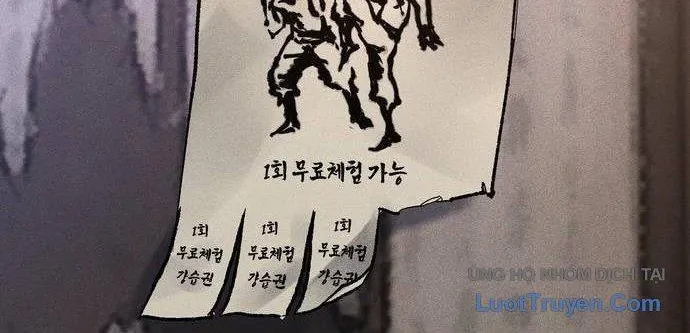 1회 무료체험 가능
1회
무료체험
강습권
1회
무료체험
강습권
1회
무료체험
강습권
ỦNG HỘ NHÓM DỊCH TẠI
LuotTruyen.Com